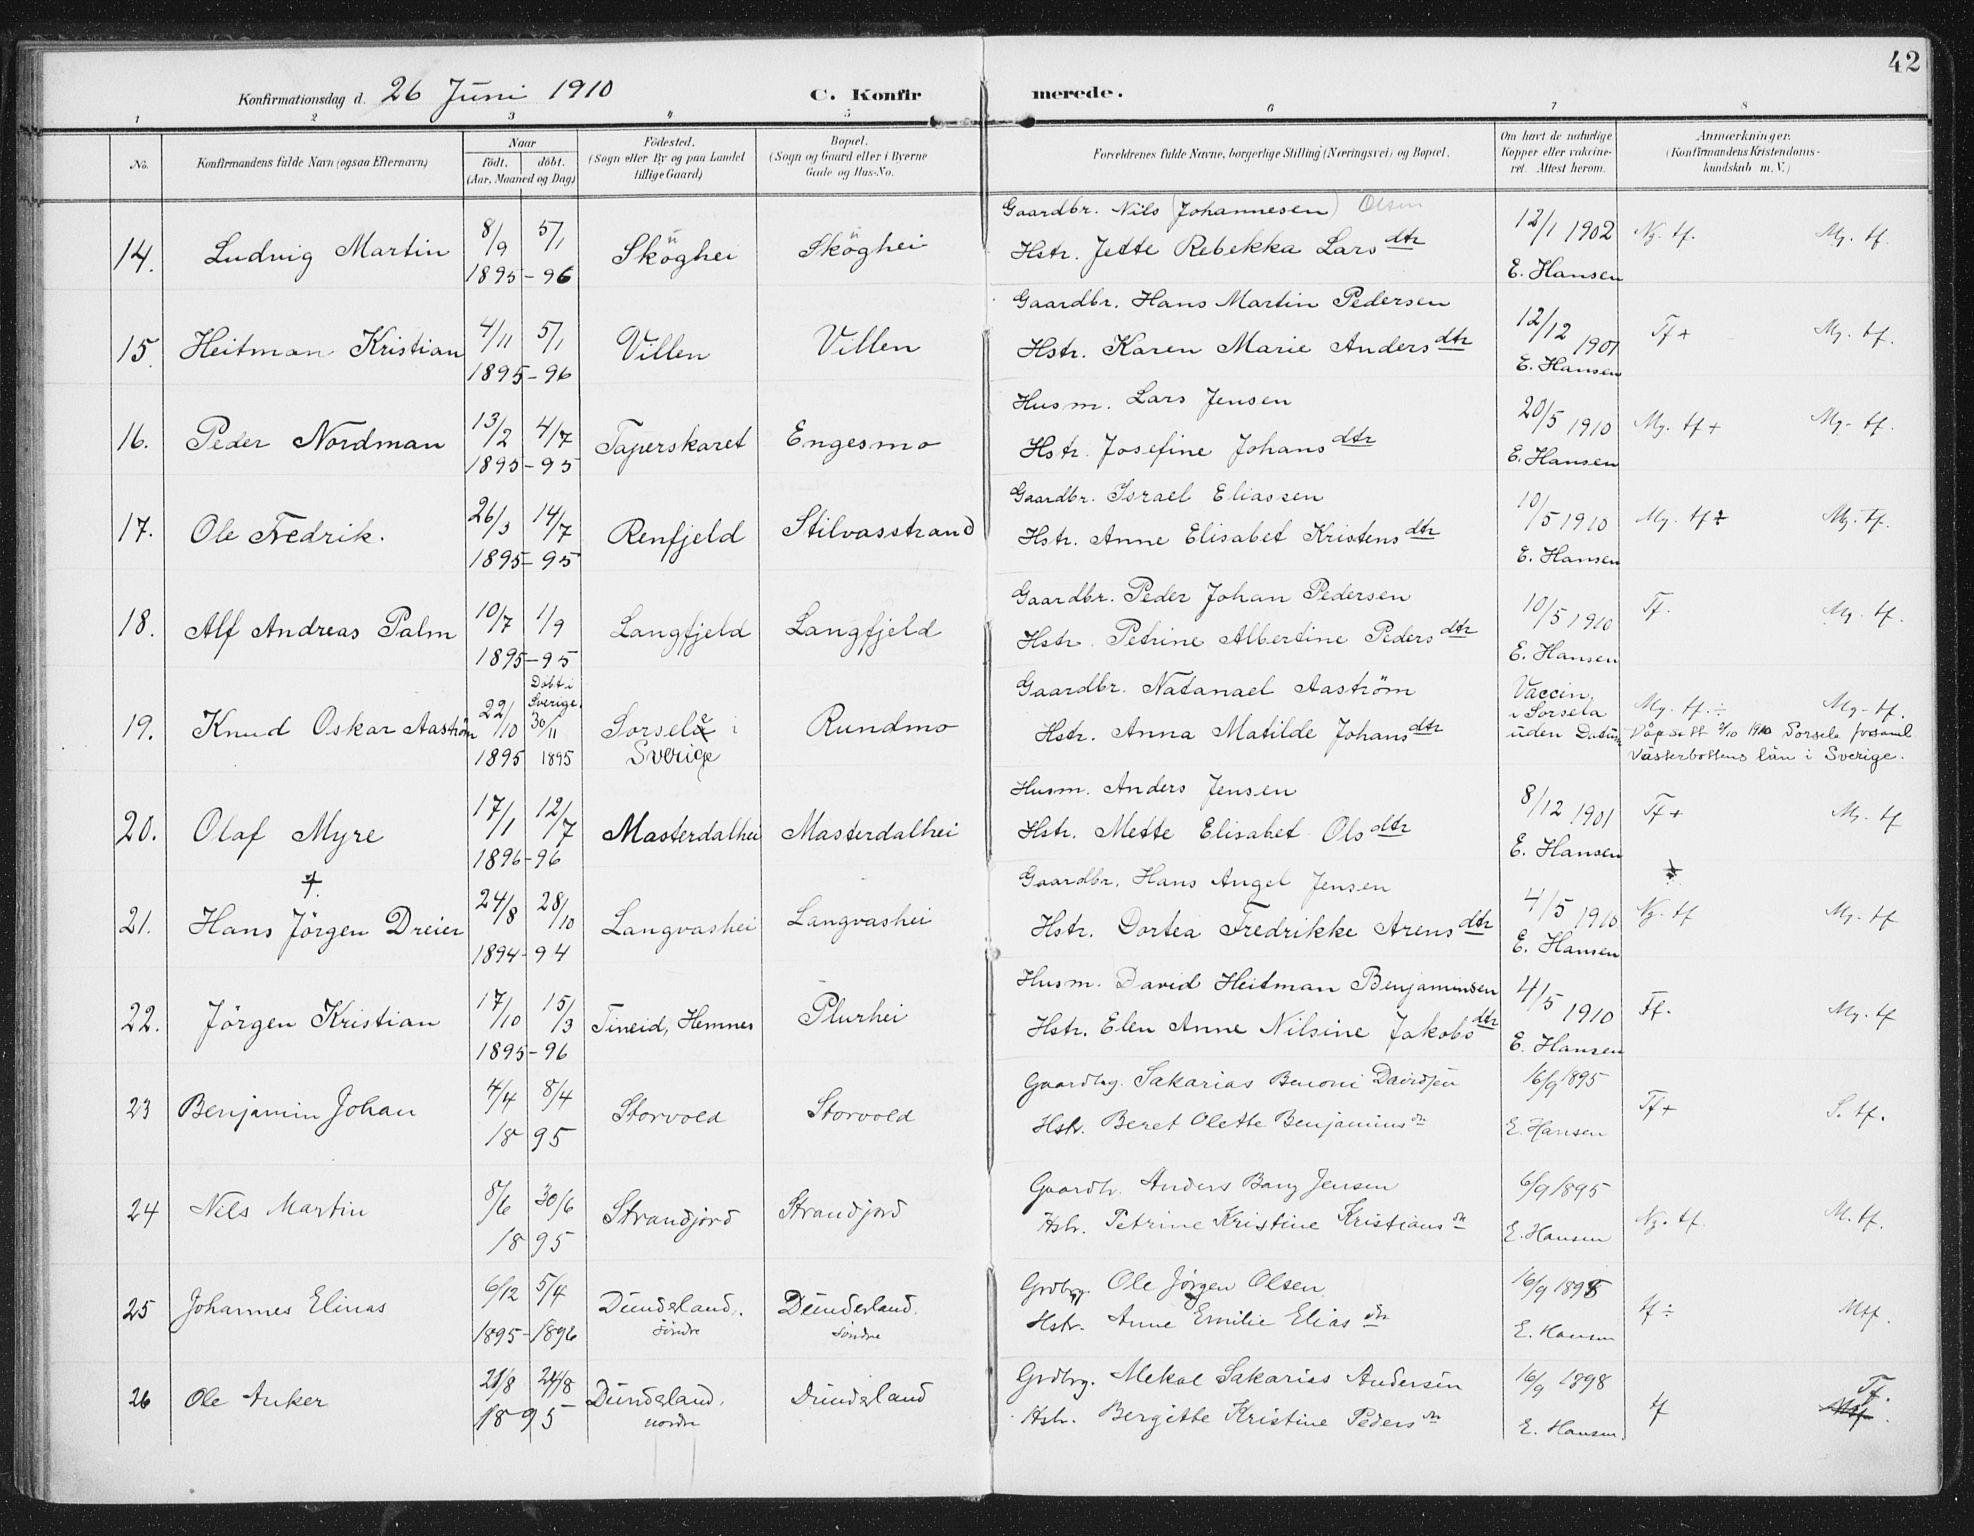 42
Konfirmationsdag d. 26 Juni 1910 C. Konfirmerede.
1 2 3 4 5 6 7 8
No. Konfirmandens fulde Navn (ogsaa Efternavn) Naar født. døbt. (Aar, Maaned og Dag) Fødested. (Sogn eller By og paa Landet tillige Gaard) Bopæl. (Sogn og Gaard eller i Byerne Gade og Hus-No. Forældrenes fulde Navne, borgerlige Stilling (Næringsvei) og Bopæl. Om havt de naturlige Kopper eller vaccineret. Attest herom. Anmærkninger. (Konfirmandens Kristendomskundskab m.V.)
Gaardbr. Nils (Johannesen) Olsen
14. Ludvig Martin 8/9 1895 5/1 -96 Skoghei Skoghei Hstr. Jette Rebekka Larsdtr 12/1 1902 E. Hansen Ng. tf. Mg. tf.
Gaardbr. Hans Martin Pedersen
15. Heitman Kristian 4/11 1895 5/1 -96 Villen Villen Hstr. Karen Marie Andersdtr 12/12 1901 E. Hansen Tf + Mg. tf.
Husm. Lars Jensen
16. Peder Nordman 13/2 1895 4/7 -95 Taperskaret Engesmo Hstr. Josefine Johansdtr 20/5 1910 E. Hansen Mg. tf + Mg. tf.
Gaardbr. Israel Eliassen
17. Ole Fredrik. 26/3 1895 14/7 -95 Renfjeld Stilvasstrand Hstr. Anne Elisabet Kristensdtr 10/5 1910 E. Hansen Mg. tf Mg. Tf.
Gaardbr. Peder Johan Pedersen
18. Alf Andreas Palm 10/7 1895 1/9 -95 Langfjeld Langfjeld Hstr. Petrine Albertine Pedersdtr 10/5 1910 E. Hansen Tf. Mg. tf.
Gaardbr. Natanael Aastrøm
19. Knud Oskar Aastrøm 22/10 1895 Døbt i Sverige. 30/11 1895 Sorsele i Sverige Rundmo Hstr. Anna Matilde Johansdtr Vaccin. i Sorsela uden Datum Mg. tf. ÷ Mg. tf.
1910 Sorsele forsaml Västerbottens län i Sverige.
Husm. Anders Jensen
20. Olaf Myre 17/1 1896 12/7 -96 Masterdalhei Masterdalhei Hstr. Mette Elisabet Olsdtr 8/12 1901 E. Hansen Tf + Mg. tf
Gaardbr. Hans Angel Jensen
21. Hans Jörgen Dreier 24/8 1894 28/10 -94 Langvashei Langvashei Hstr. Dortea Fredrikke Arensdtr 4/5 1910 E. Hansen Ng. tf Mg. tf
Husm. David Heitman Benjaminsen
22. Jörgen Kristian 17/10 1895 15/3 -96 Tineid, Hemnes Plurhei Hstr. Elen Anne Nilsine Jakobsdtr 4/5 1910 E. Hansen Tf. Mg. tf
Gaardbrg. Sakarias Benoni Davidsen
23 Benjamin Johan 4/4 8/4 1895 Storvold Storvold Hstr. Beret Olette Benjaminsdtr 16/9 1895 E. Hansen Tf + S. tf.
Gaardbr. Anders Bang Jensen
24 Nils Martin 8/6 30/6 1895 Strandjord Strandjord Hstr. Petrine Kristine Kristiansdtr 6/9 1895 E. Hansen Ng. tf. M. tf.
Grdbrg. Ole Jørgen Olsen
25 Johannes Elinas 6/12 1895 5/4 -1896 Dunderland. søndre Dunderland. søndre Hstr. Anne Emilie Eliasdtr 16/9 1898 E. Hansen tf ÷ Mtf.
Grdbrg. Mekal Sakarias Andersen
26 Ole Anker 21/8 24/8 1895 Dunderland. nordre Dunderland Hstr. Bergitte Kristine Pedersdtr 16/9 1898 E. Hansen. tf Tf.